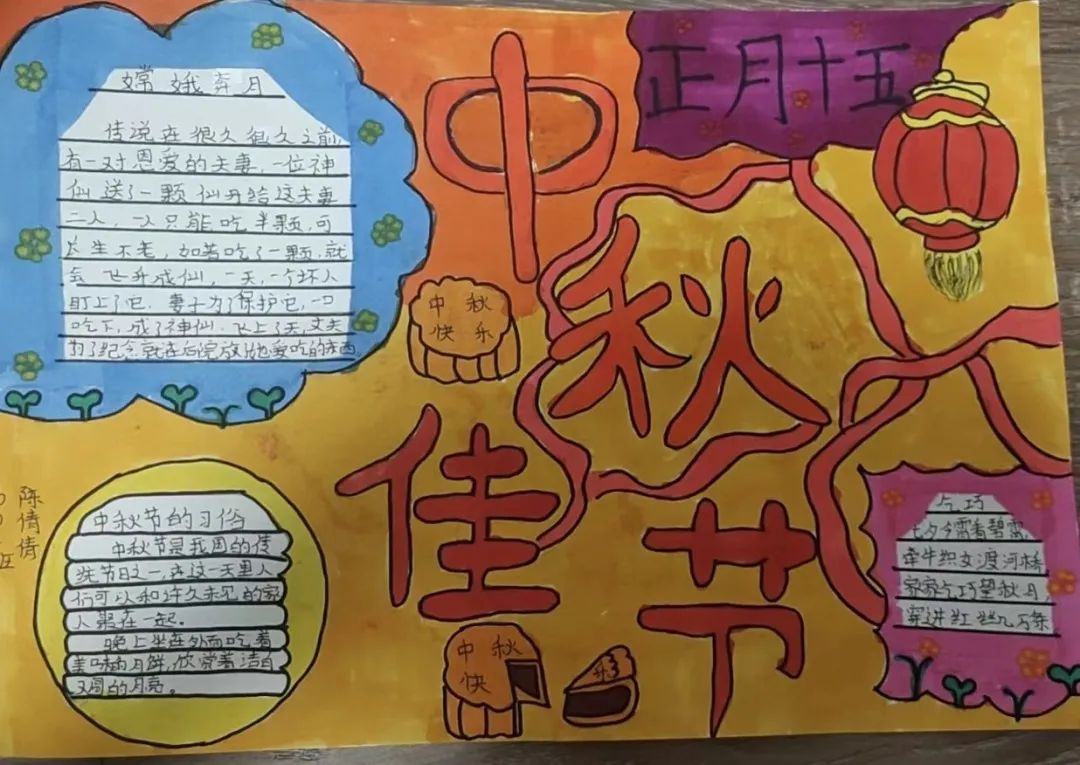 嫦娥奔月
传说在很久很久之前,
有一对恩爱的夫妻,一位神
仙送了一颗仙丹给这夫妻
二人,一人只能吃半颗,可
长生不老,如若吃了一颗,就
会飞升成仙,一天,一个坏人
盯上了它.妻子为了保护它,一口
吃下,成了神仙.飞上了天,丈夫
为了纪念就在后院放她爱吃的东西
中
秋
佳
节
正月十五
中秋
快乐
中秋节的习俗
中秋节是我国的传
统节日之一,在这一天里人
们可以和许久未见的家
人聚在一起。
晚上坐在外面吃着
美味的月饼,欣赏着洁白
又圆的月亮。
中秋
快
乐
乞巧
七夕今宵看碧霄,
牵牛织女渡河桥,
家家乞巧望秋月,
穿进红丝几万条
陈
倩
倩